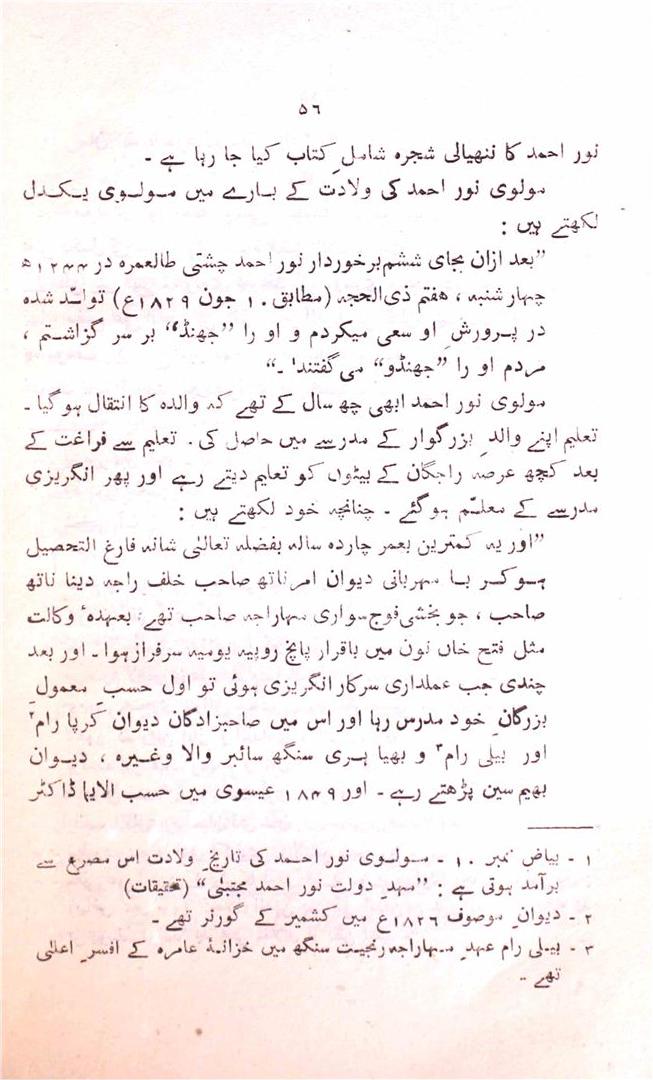 ۵۶
نور احمد کا ننھیالی شجرہ شاملِ کتاب کیا جا رہا ہے ۔
مولوی نور احمد کی ولادت کے بارے میں مولوی یکدل
لکھتے ہیں :
”بعد ازاں بجای ششم برخوردار نور احمد چشتی طالعمرہ در ۱۲۴۴ھ
چہار شنبہ ، ہفتم ذی الحجہ (مطابق ۱۰ جون ۱۸۲۹ع) تولّد شدہ
در پرورشِ او سعی میکردم و او را ”جھنڈ“ بر سر گزاشتم ،
مردم او را ”جھنڈو“ می گفتند۱ ۔“
مولوی نور احمد ابھی چھ سال کے تھے کہ والدہ کا انتقال ہو گیا ۔
تعلیم اپنے والدِ بزرگوار کے مدرسے میں حاصل کی ۔ تعلیم سے فراغت کے
بعد کچھ عرصہ راجگان کے بیٹوں کو تعلیم دیتے رہے اور پھر انگریزی
مدرسے کے معلّم ہو گئے ۔ چنانچہ خود لکھتے ہیں :
”اور یہ کمترین بعمر چاردہ سالہ بفضلہ تعالیٰ شانہ فارغ التحصیل
ہو کر با مہربانی دیوان امر ناتھ صاحب خلف راجہ دینا ناتھ
صاحب ، جو بخشی فوج سواری مہاراجہ صاحب تھے ، بعہدۂ وکالت
مثل فتح خاں نون میں باقرار پانچ روپیہ یومیہ سرفراز ہوا ۔ اور بعد
چندی جب عملداری سرکار انگریزی ہوئی تو اول حسبِ معمولِ
بزرگانِ خود مدرس رہا اور اس میں صاحبزادگان دیوان کرپا رام۲
اور بیلی رام۳ و بھیا ہری سنگھ سائبر والا وغیرہ ، دیوان
بھیم سین پڑھتے رہے ۔ اور ۱۸۴۹ عیسوی میں حسب الایما ڈاکٹر
۱ - بیاض نمبر ۱۰ ۔ مولوی نور احمد کی تاریخِ ولادت اس مصرع سے
برآمد ہوتی ہے : ”مہدِ دولت نور احمد مجتبیٰ“ (تحقیقات)
۲ - دیوانِ موصوف ۱۸۲۶ع میں کشمیر کے گورنر تھے ۔
۳ - بیلی رام عہدِ مہاراجہ رنجیت سنگھ میں خزانۂ عامرہ کے افسرِ اعلیٰ
تھے ۔